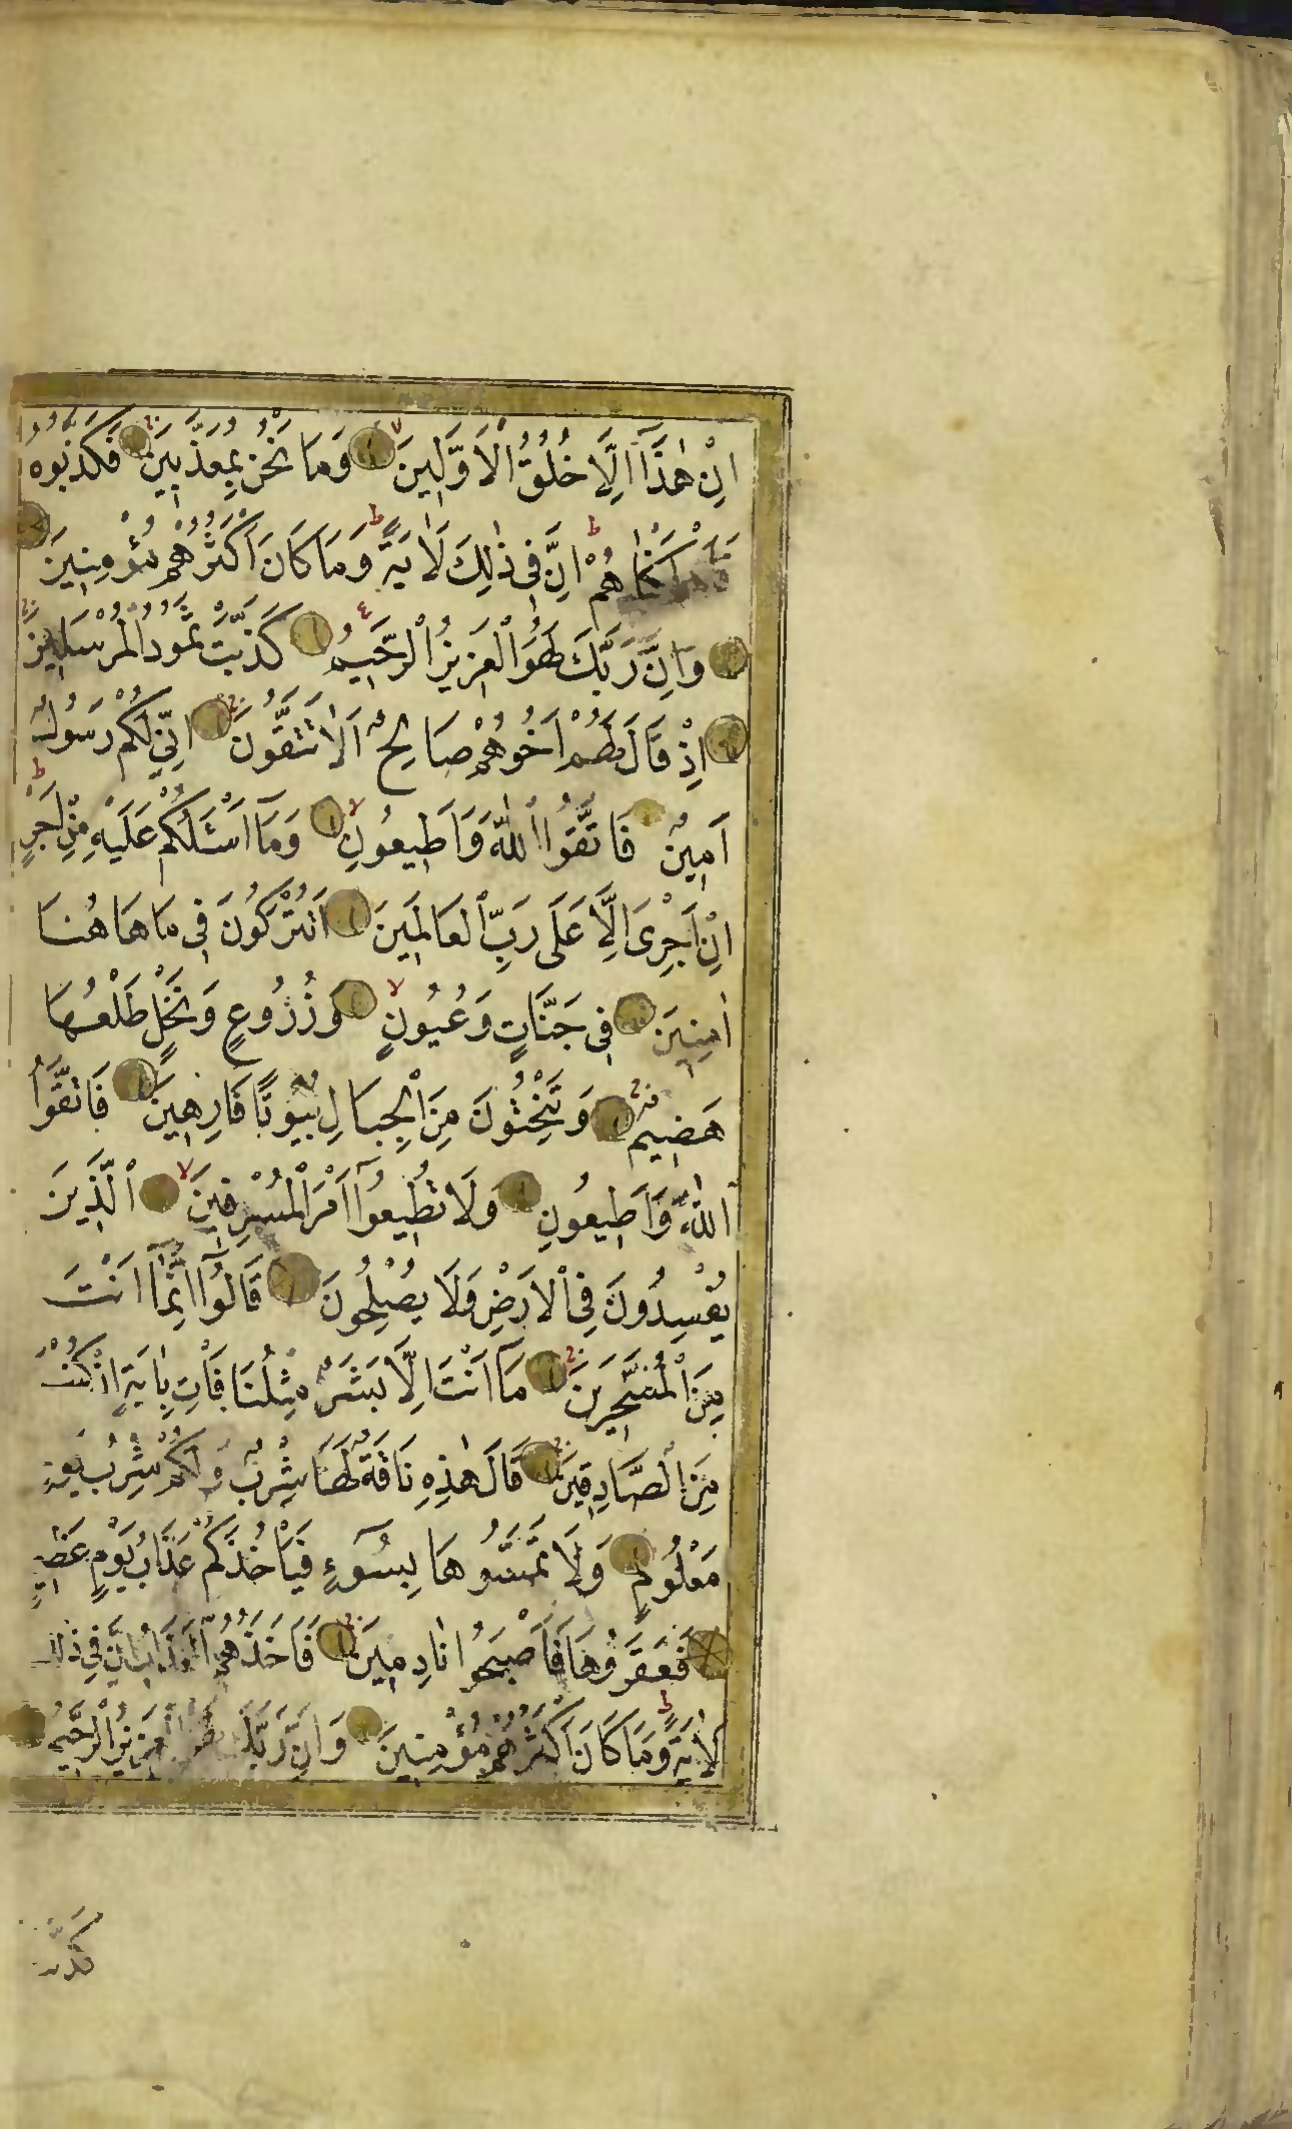 اِنْ هٰذَٓا اِلَّا خُلُقُ الْاَوَّلِينَ وَمَا نَحْنُ بِمُعَذَّبِينَ فَكَذَّبُوهُ
فَاَهْلَكْنَاهُمْ اِنَّ فِى ذٰلِكَ لَاٰيَةً وَمَا كَانَ اَكْثَرُهُمْ مُؤْمِنِينَ
وَاِنَّ رَبَّكَ لَهُوَ الْعَزِيزُ الرَّحِيمُ كَذَّبَتْ ثَمُودُ الْمُرْسَلِينَ
اِذْ قَالَ لَهُمْ اَخُوهُمْ صَالِحٌ اَلَا تَتَّقُونَ اِنِّى لَكُمْ رَسُولٌ
اَمِينٌ فَاتَّقُوا اللّٰهَ وَاَطِيعُونِ وَمَٓا اَسْـَٔلُكُمْ عَلَيْهِ مِنْ اَجْرٍ
اِنْ اَجْرِىَ اِلَّا عَلٰى رَبِّ الْعَالَمِينَ اَتُتْرَكُونَ فِى مَا هَاهُنَا
اٰمِنِينَ فِى جَنَّاتٍ وَعُيُونٍ وَزُرُوعٍ وَنَخْلٍ طَلْعُهَا
هَضِيمٌ وَتَنْحِتُونَ مِنَ الْجِبَالِ بُيُوتًا فَارِهِينَ فَاتَّقُوا
اللّٰهَ وَاَطِيعُونِ وَلَا تُطِيعُٓوا اَمْرَ الْمُسْرِفِينَ اَلَّذِينَ
يُفْسِدُونَ فِى الْاَرْضِ وَلَا يُصْلِحُونَ قَالُٓوا اِنَّمَٓا اَنْتَ
مِنَ الْمُسَحَّرِينَ مَٓا اَنْتَ اِلَّا بَشَرٌ مِثْلُنَا فَأْتِ بِاٰيَةٍ اِنْ كُنْتَ
مِنَ الصَّادِقِينَ قَالَ هٰذِهِ نَاقَةٌ لَهَا شِرْبٌ وَلَكُمْ شِرْبُ يَوْمٍ
مَعْلُومٍ وَلَا تَمَسُّوهَا بِسُٓوءٍ فَيَأْخُذَكُمْ عَذَابُ يَوْمٍ عَظِيمٍ
فَعَقَرُوهَا فَاَصْبَحُوا نَادِمِينَ فَاَخَذَهُمُ الْعَذَابُ اِنَّ فِى ذٰلِكَ
لَاٰيَةً وَمَا كَانَ اَكْثَرُهُمْ مُؤْمِنِينَ وَاِنَّ رَبَّكَ لَهُوَ الْعَزِيزُ الرَّحِيمُ
كَذَّبَتْ